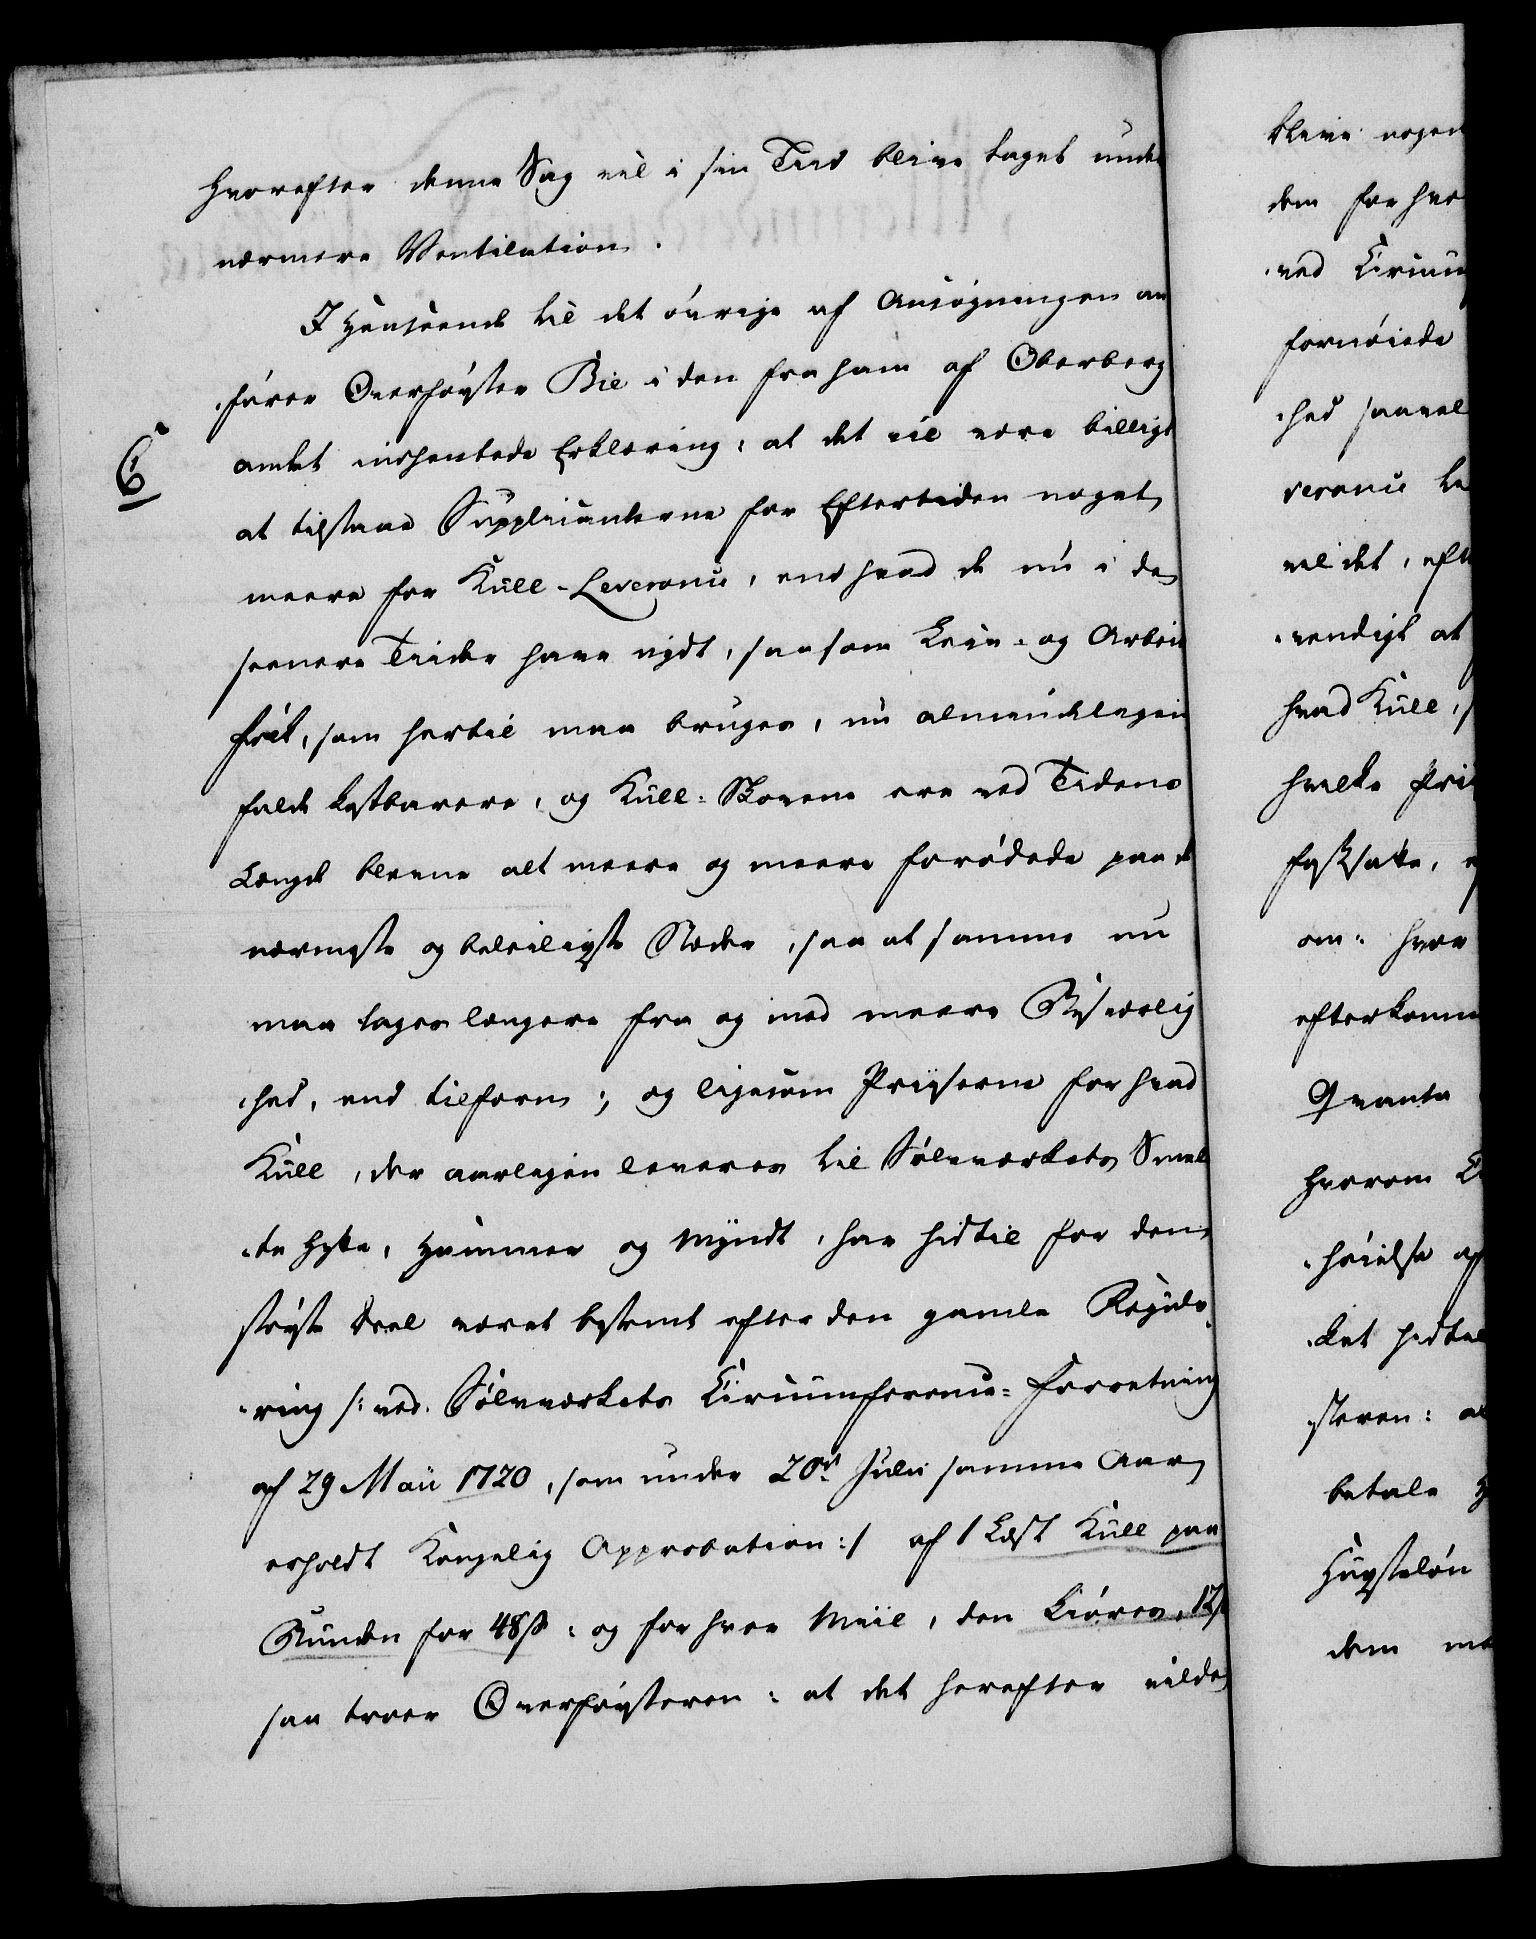 hvorefter denne Sag vil i sin Tiid blive taget under
nærmere Ventilation.
I Henseende til det øvrige af Ansøgningen an
fører Overførster Bie i den fra ham af Oberberg
6
amtet indhentede Erklæring: at det vil være billigt
at tilstaae Supplicanterne for Eftertiden noget
meere for Kull-Leverance, end hvad de nu i de
seenere Tiider have nydt, saasom Leie- og Arbeids
folk, som hertil maa bruges, nu almindeligen
falde kostbarere, og Kull-Skovene ere ved Tidens
Længde blevne alt meere og meere forødede paa de
nærmeste og beleiligste Stæder, saa at samme nu
maa tages længere fra og med meere Besværlig
hed, end tilforn; og ligesom Priiserne for hvad
Kull, der aarligen leveres til Sølvværkets Smel
te Hytte, Hammer og Myndt, har hidtil for den
støste Deel været bestemt efter den gamle Regule
ring /: ved Sølvværkets Circumference-Forretning
af 29 Maii 1720, som under 20de Julii samme Aar
erholdt Kongelig Approbation :/ af 1 Læst Kull paa
Bunden for 48 ß: og for hver Miil, den Kiøres, 12 ß
saa troer Overførsteren: at det herefter vilde
blive nogen
dem for hvo
ved Circum
fornøiede
hed saavel
verance
vel det, eft
vendigt at
hvad Kull,
hvilke Pri
fastsatte,
om: hver
efterkomm
Qvanta
hvorom
høielse af
ket hidtil
steren: al
betale
Huusteløn
dem me